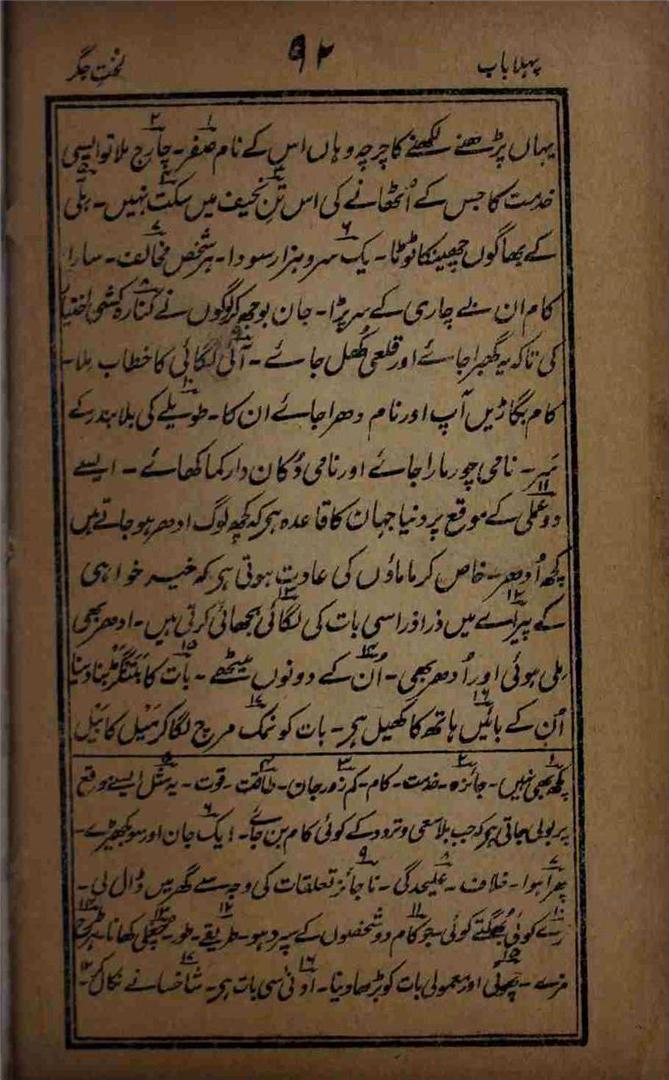 پہلا باب ۹۲ لختِ جگر
یہاں پڑھنے لکھنے کا چرچہ وہاں اس کے نام صفر۱۔ چارج۲ ملا تو ایسی
خدمت۳ کا جس کے اُٹھانے کی اس تنِ نحیف میں سکت۴ نہیں۔ بلّی۵
کے بھاگوں چھینکا ٹوٹا۔ یک۶ سر و ہزار سودا۔ ہر شخص مخالف۷۔ سارا
کام ان بے چاری کے سر پڑا۔ جان بوجھ کر لوگوں نے کنارہ کشی۸ اختیار
کی تاکہ یہ گھبرا جائے اور قلعی کھُل جائے۔ آئی لگائی۹ کا خطاب ملا۔
کام بگاڑیں آپ اور نام دھرا جائے ان کا۔ طویلے۱۰ کی بلا بندر کے
سر۔ نامی چور مارا جائے اور نامی دُکان دار کما کھائے۔ ایسے
دو عملی۱۱ کے موقع پر دنیا جہان کا قاعدہ ہی کہ کچھ لوگ ادھر ہو جاتے ہیں
کچھ اُدھر۔ خاص کر ماماؤں کی عادت ہوتی ہی کہ خیر خواہی
کے پیرایے۱۲ میں ذرا ذرا سی بات کی لگائی بجھائی۱۳ کرتی ہیں۔ ادھر بھی
ملی ہوئی اور اُدھر بھی۔ اُن کے دونوں میٹھے۱۴۔ بات کا بتنگڑ۱۵ بنا دینا
اُن کے بائیں۱۶ ہاتھ کا کھیل ہی۔ بات کو نمک۱۷ مرچ لگا کر میل کا بیل
۱ کچھ بھی نہیں۔ ۲ جائزہ۔ ۳ خدمت۔ کام۔ کم زور جان۔ ۴ طاقت۔ قوت۔ ۵ یہ مثل ایسے موقع
پر بولی جاتی ہی کہ جب بلا سعی و تردد کے کوئی کام بن جائے۔ ۶ ایک جان اور سو بکھیڑے۔
۷ پھرا ہوا۔ خلاف۔ ۸ علیحدگی۔ ۹ ناجائز تعلقات کی وجہ سے گھر میں ڈال لی۔
۱۰ کرے کوئی بھُگتے کوئی ۱۱ جو کام دو شخصوں کے سپرد ہو۔ ۱۲ طریقے۔ طور۔ ۱۳ چغلی کھانا۔ ۱۴ ہر طرح
مزے۔ ۱۵ چھوٹی اور معمولی بات کو بڑھا دینا۔ ۱۶ ادنیٰ سی بات ہی۔ ۱۷ شاخسانے نکال کر۔